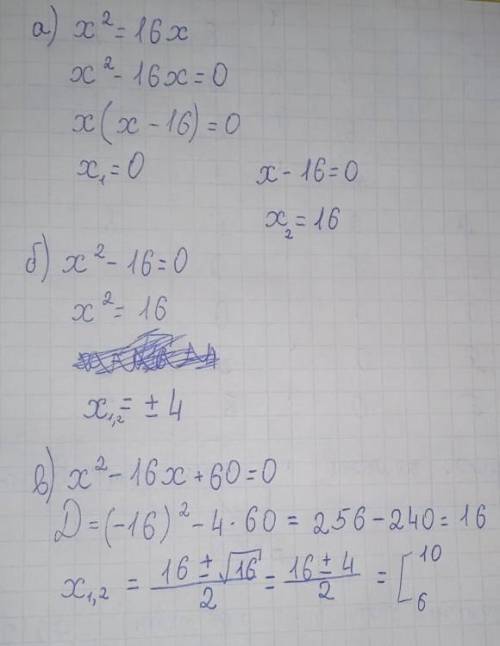 а) x² = 16x
x² - 16x = 0
x(x - 16) = 0
x₁ = 0 x - 16 = 0
x₂ = 16
б) x² - 16 = 0
x² = 16
x₁,₂ = ± 4
в) x² - 16x + 60 = 0
D = (-16)² - 4 · 60 = 256 - 240 = 16
x₁,₂ = (16 ± √16)/2 = (16 ± 4)/2 = [10
6